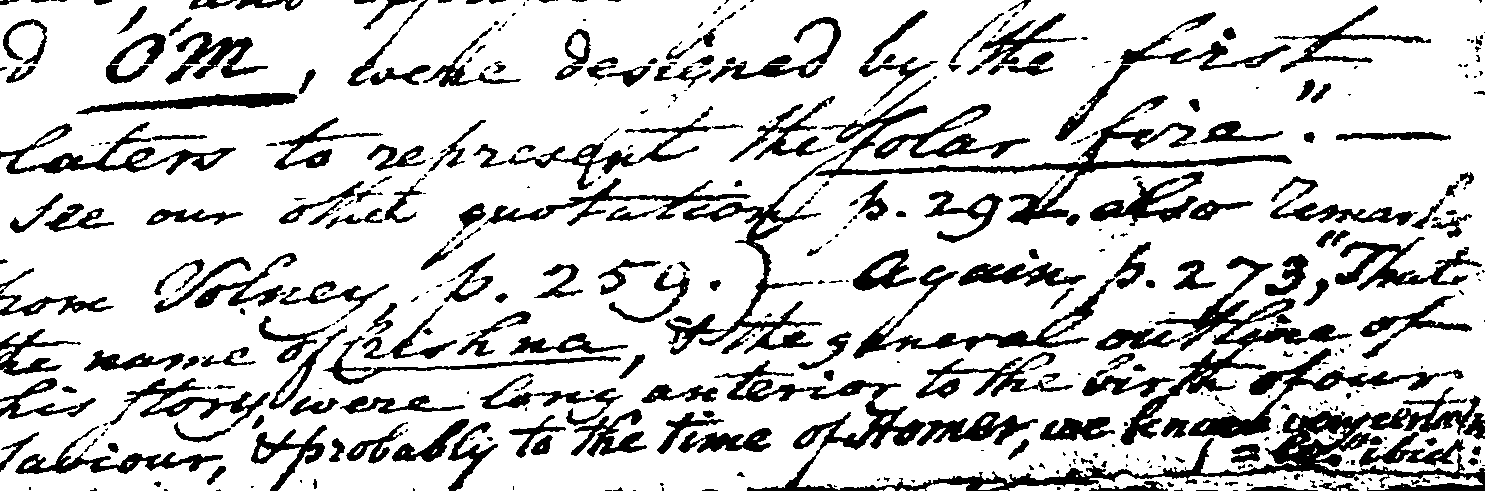 O'M, were designed by the first
to represent the Solar fire." —
see our other quotation p. 292. also remarks
from Volney, p. 259.) — Again, p. 273, "That
the name of Crishna, & the general outline of
his story, were long anterior to the birth of our
Saviour, & probably to the time of Homer, we know very certain
=ly." ibid.